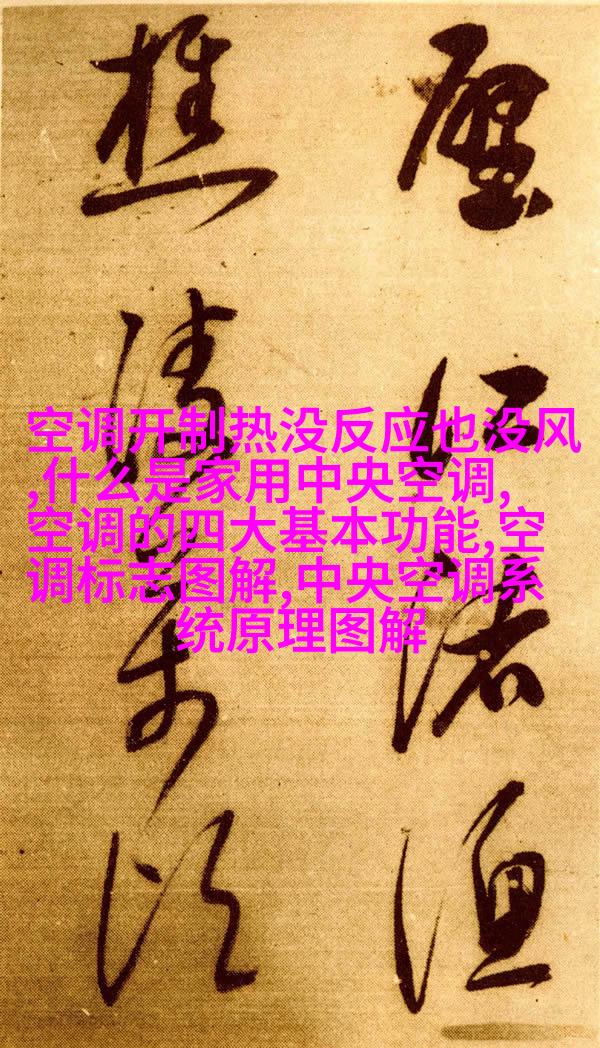 空调开制热没反应也没风
,什么是家用中央空调,
空调的四大基本功能,空
调标志图解,中央空调系
统原理图解
江渚漁
樵